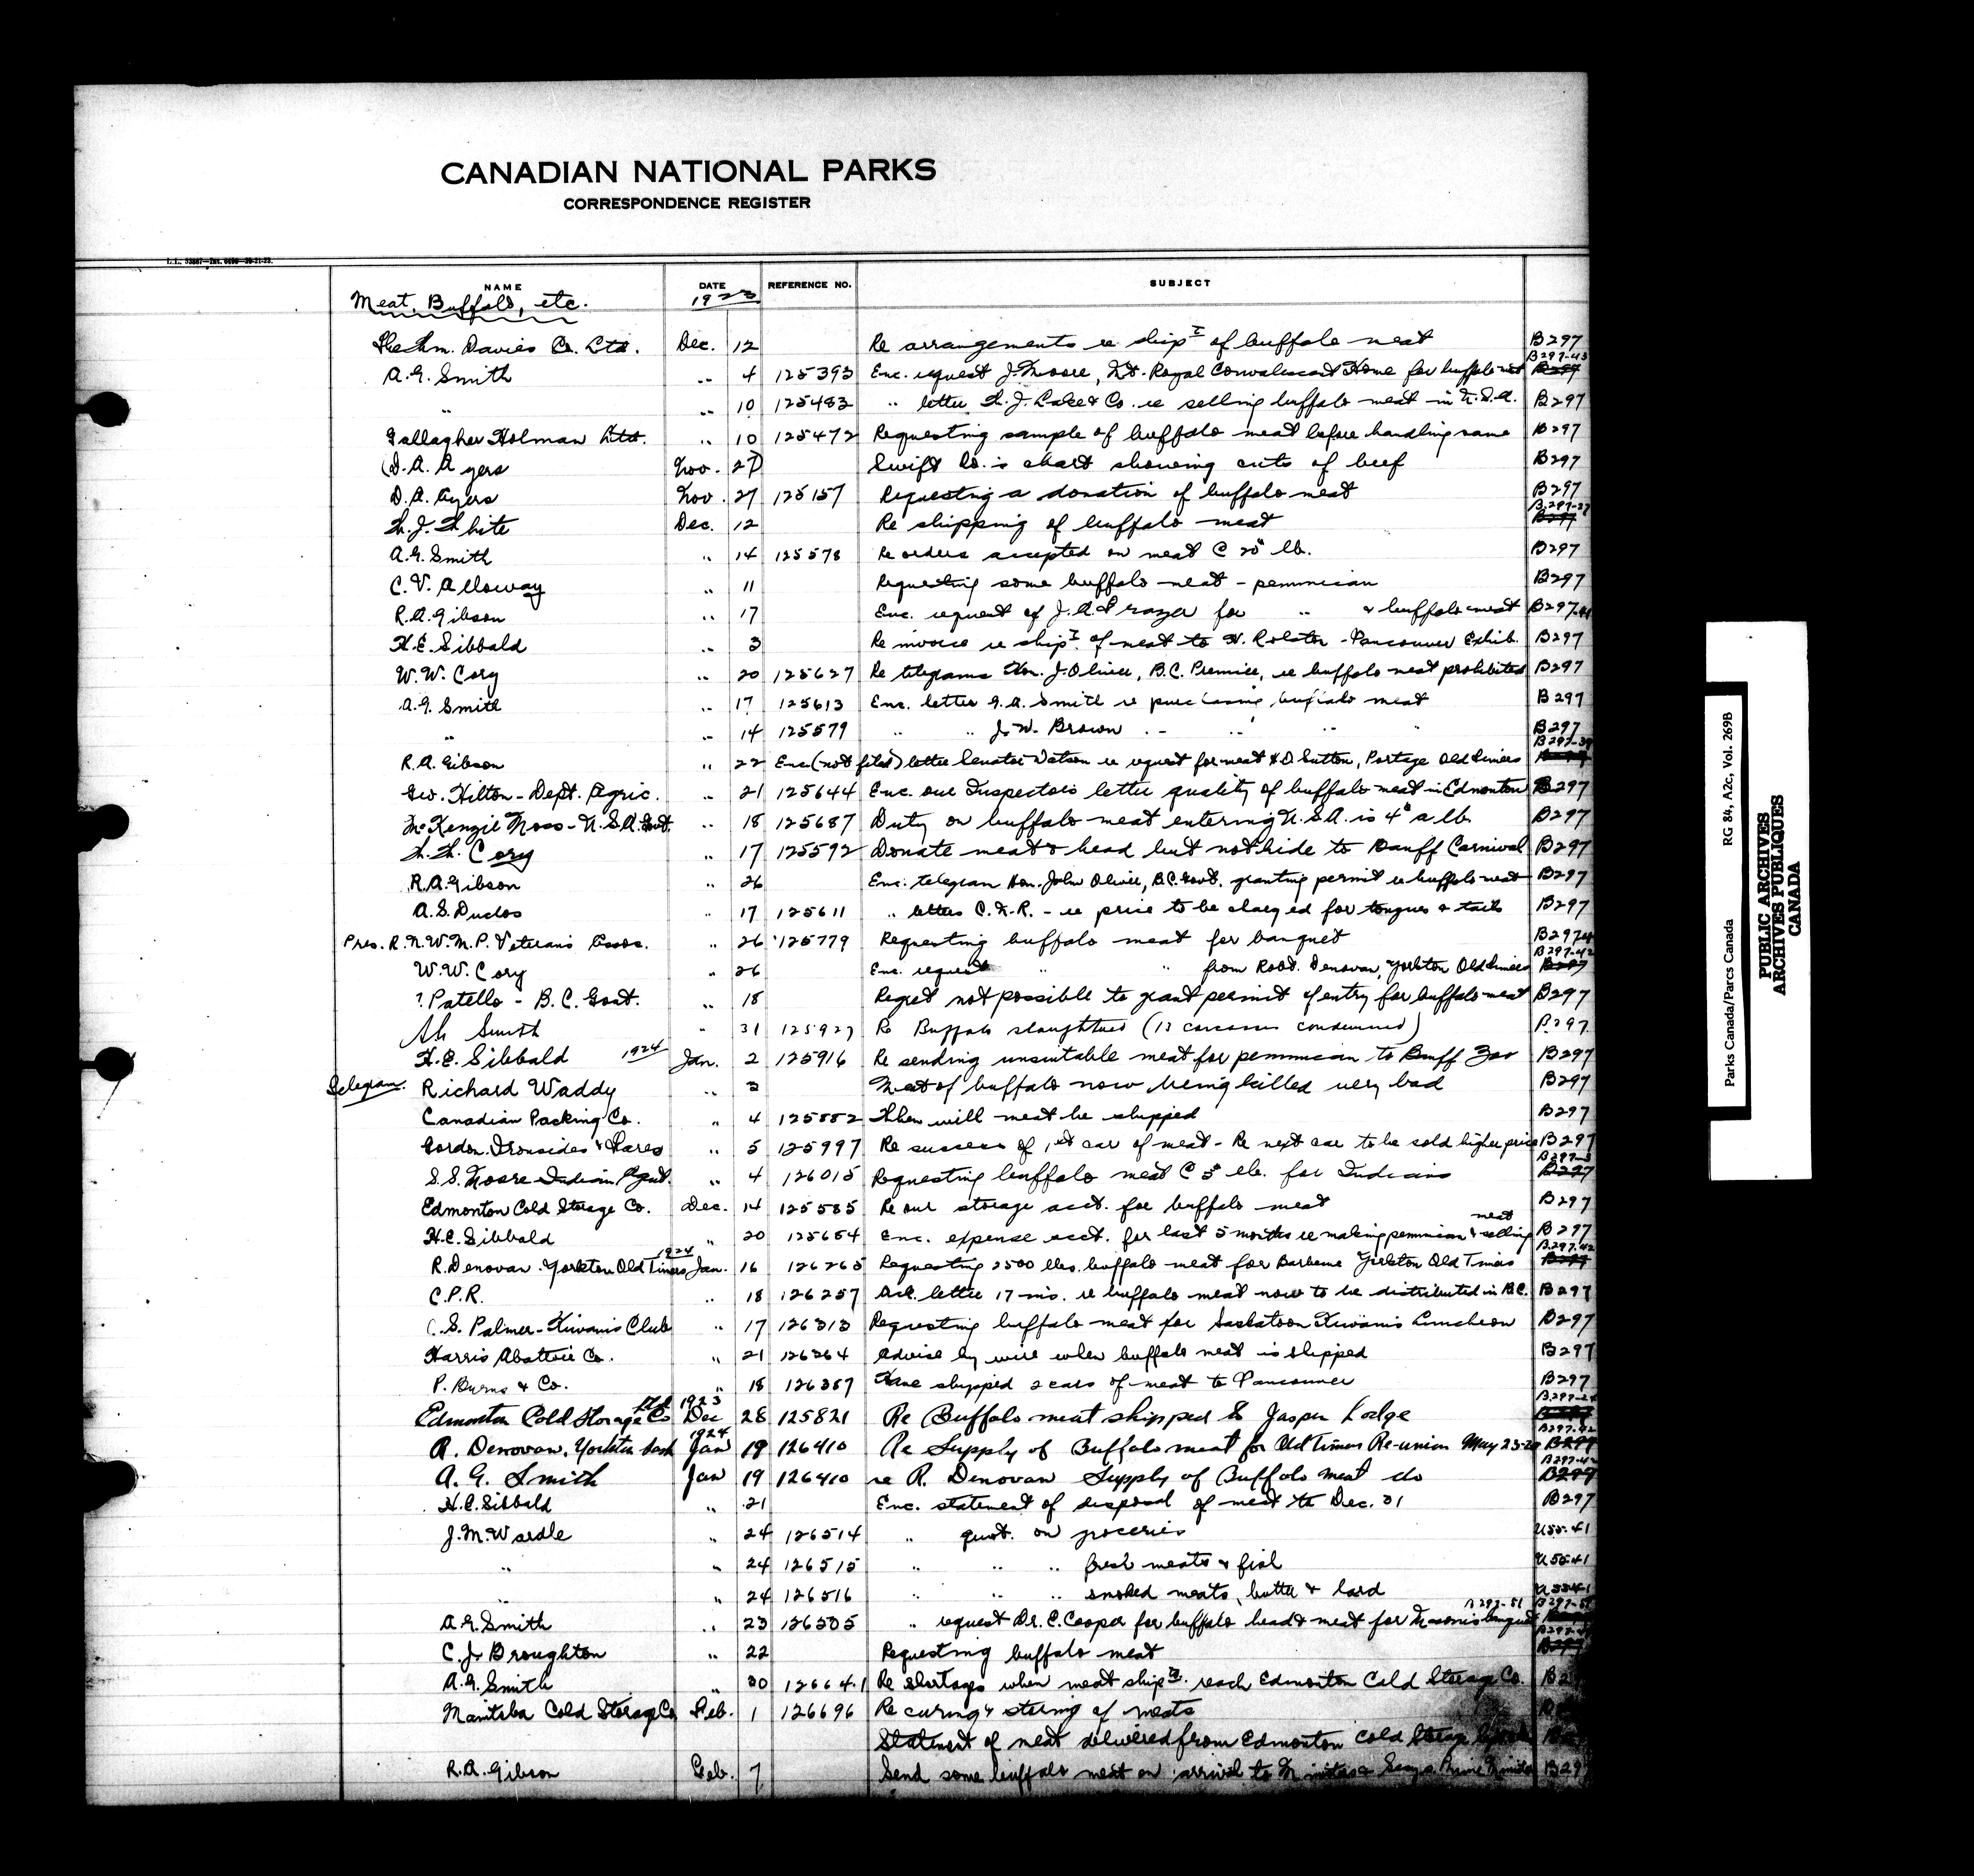 CANADIAN NATIONAL PARKS
CORRESPONDENCE REGISTER
NAME DATE REFERENCE NO. SUBJECT
Meat, Buffalo, etc. 1923
Davies Co. Ltd. Dec. 12 Re arrangements re ship't of buffalo meat B297
A.G. Smith " 4 125393 Enc. request J. Moore, Royal Convalescent Home for buffalo meat B297-43 B297
" " 10 125483 " letter Lake & Co. re selling buffalo meat in U.S.A. B297
Gallagher Holman Ltd. " 10 125472 Requesting sample of buffalo meat before handling same B297
(D.A. Ayers Nov. 27) Swift Co.'s chart showing cuts of beef B297
D.A. Ayers Nov. 27 125157 Requesting a donation of buffalo meat B297
W.J. White Dec. 12 Re shipping of buffalo meat B297-37 B297
A.G. Smith " 14 125578 Re orders accepted on meat @ 20¢ lb. B297
C.V. Alloway " 11 Requesting some buffalo meat - pemmican B297
R.A. Gibson " 17 Enc. request of J.A. Frazer for " & buffalo meat B297-41
H.E. Sibbald " 3 Re invoice re ship't of meat to H. Rolston - Vancouver Exhib. B297
W.W. Cory " 20 125627 Re telegrams Hon. J. Oliver, B.C. Premier, re buffalo meat prohibited B297
A.G. Smith " 17 125613 Enc. letter G.A. Smith re purchasing buffalo meat B297
" " 14 125579 " " J.W. Brown " " " " B297
R.A. Gibson " 22 Enc (not filed) letter Senator Watson re request for meat D. Sutton, Portage Old Timers B297-39
Geo. Hilton - Dept. Agric. " 21 125644 Enc. our Inspectors letter quality of buffalo meat in Edmonton B297
McKenzie Moss - U.S.A. Govt. " 18 125687 Duty on buffalo meat entering U.S.A. is 4¢ a lb B297
W.W. Cory " 17 125592 Donate meat & head but not hide to Banff Carnival B297
R.A. Gibson " 26 Enc. telegram Hon. John Oliver, B.C. Govt. granting permit re buffalo meat B297
A.S. Duclos " 17 125611 " letters C.N.R. - re price to be charged for tongues & tails B297
Pres. R.N.W.M.P. Veterans Assoc. " 26 125779 Requesting buffalo meat for banquet B297
W.W. Cory " 26 Enc. request " " from Robt. Denovan, Yorkton Old Timers B297-42 B297
? Patello - B.C. Govt. " 18 Regret not possible to grant permit of entry for buffalo meat B297
Smith " 31 125927 Re Buffalo slaughtered (13 carcasses condemned) B297
H.E. Sibbald 1924 Jan. 2 125916 Re sending unsuitable meat for pemmican to Banff Zoo B297
Telegram. Richard Waddy " 3 Meat of buffalo now being killed very bad B297
Canadian Packing Co. " 4 125882 When will meat be shipped B297
Gordon Ironsides & Fares " 5 125997 Re success of 1st car of meat - Re next car to be sold higher price B297
S.S. Moore Indian Agent. " 4 126015 Requesting buffalo meat @ 5¢ lb. for Indians B297-3 B297
Edmonton Cold Storage Co. Dec. 14 125585 Re our storage acct. for buffalo meat B297
H.E. Sibbald " 20 125654 Enc. expense acct. for last 5 months re making pemmican & selling meat B297
R. Denovan. Yorkton Old Timers 1924 Jan. 16 126265 Requesting 2500 lbs. buffalo meat for Barbecue Yorkton Old Timers B297-42 B297
C.P.R. " 18 126257 Ack. letter 17 ins. re buffalo meat now to be distributed in B.C. B297
C.S. Palmer - Kiwanis Club " 17 126313 Requesting buffalo meat for Saskatoon Kiwanis Luncheon B297
Harris Abattoir Co. " 21 126364 Advise by wire when buffalo meat is shipped B297
P. Burns & Co. " 18 126387 Have shipped 2 cars of meat to Vancouver B297
Edmonton Cold Storage Co Ltd 1923 Dec 28 125821 Re Buffalo meat shipped to Jasper Lodge
R. Denovan, Yorkton Sask 1924 Jan 19 126410 Re Supply of Buffalo meat for Old Timers Re-union May 23-24 B297-42 B297
A.G. Smith Jan 19 126410 re R. Denovan Supply of Buffalo meat do B297-42 B297
H.E. Sibbald " 21 Enc. statement of disposal of meat to Dec. 31 B297
J.M. Wardle " 24 126514 " quot. on groceries U55-41
" " 24 126515 " " " fresh meats & fish U55-41
" " 24 126516 " " " smoked meats, butter & lard U55-41
A.G. Smith " 23 126505 " request Dr. C. Cooper for buffalo head & meat for Masonic banquet B297-51
C.J. Broughton " 22 Requesting buffalo meat
A.G. Smith " 30 126641 Re shortages when meat ship'ts reach Edmonton Cold Storage Co.
Manitoba Cold Storage Co Feb. 1 126696 Re curing & storing of meats
Statement of meat delivered from Edmonton Cold Storage
R.A. Gibson Feb. 7 Send some buffalo meat on arrival to Prime Minister B297
Parks Canada/Parcs Canada RG 84, A2c, Vol. 269B
PUBLIC ARCHIVES
ARCHIVES PUBLIQUES
CANADA